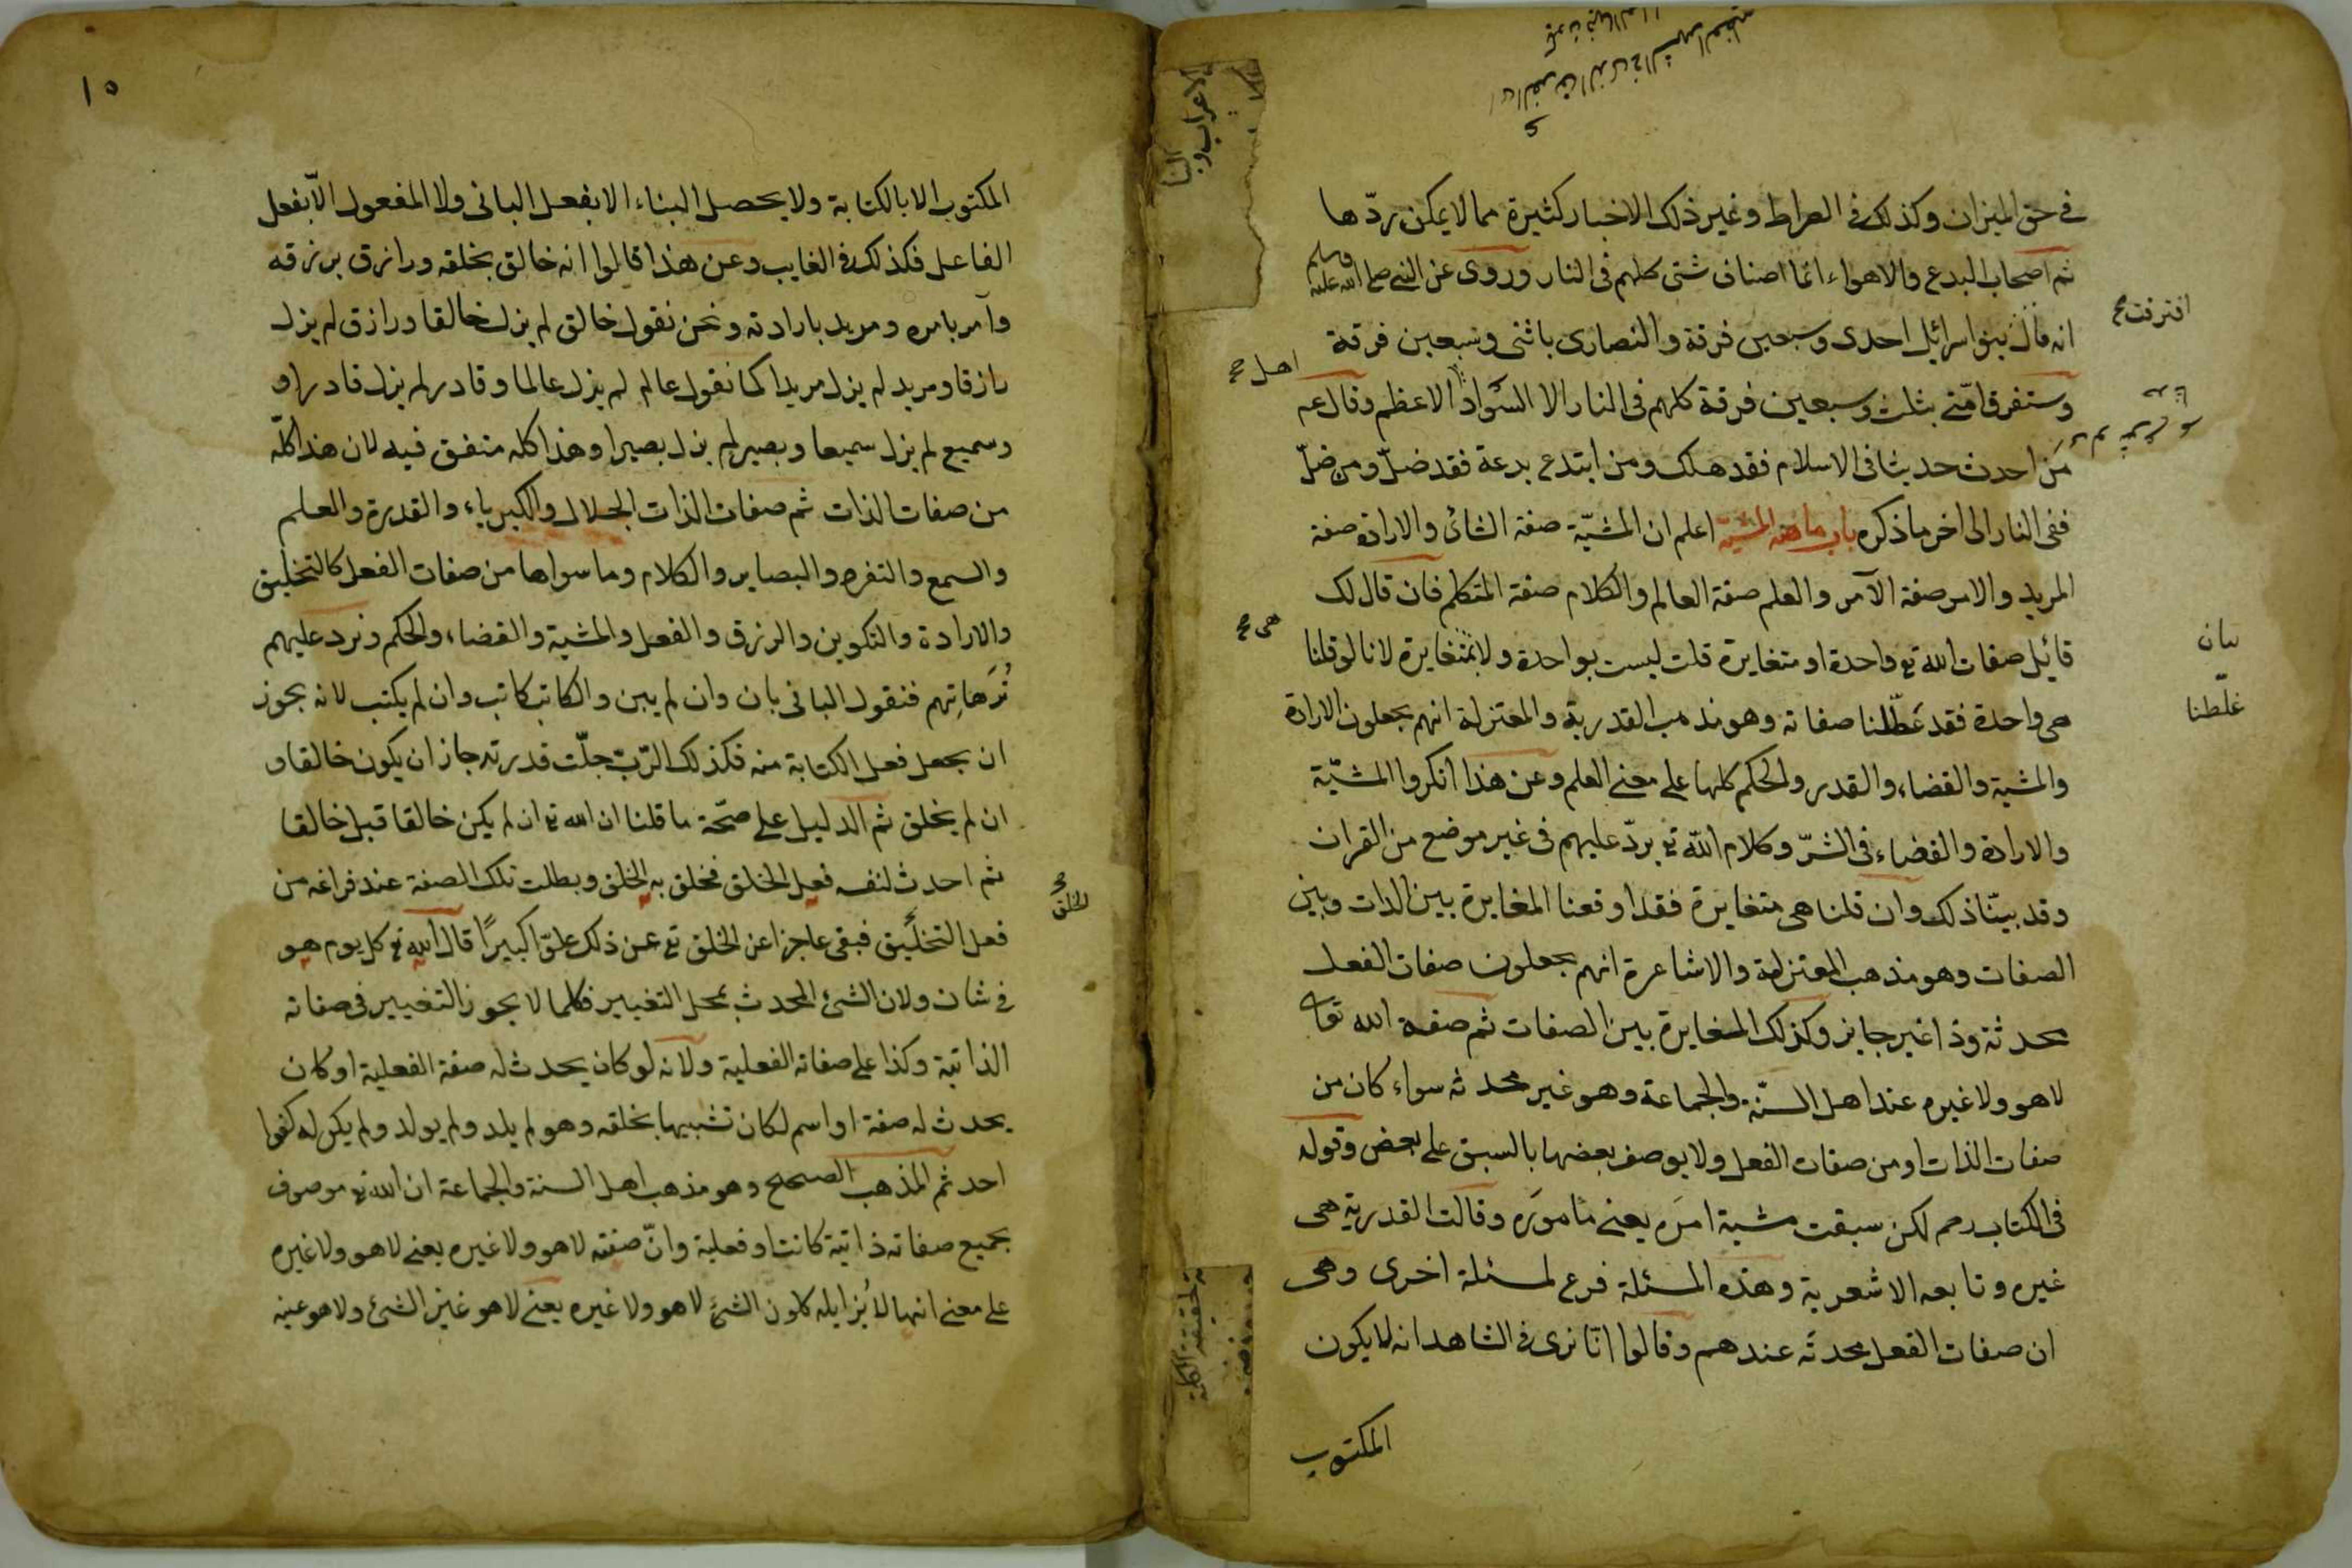 في حق الميزان وكذلك في الصراط وغير ذلك الاخبار كثيرة مما لا يمكن ردّها
ثم اصحاب البدع والاهواء انما اصناف شتى كلهم في النار وروى عن النبي صلى الله عليه وسلم
انه قال بنو اسرائيل احدى وسبعين فرقة والنصارى باثنى وسبعين فرقة
افترقت صح
وستفرق امّتى بثلث وسبعين فرقة كلهم في النار الا السّواد الاعظم وقال عم
اهل صح
مَن احدث حديثا في الاسلام فقد هلك ومن ابتدع بدعة فقد ضلّ ومن ضلّ
ففى النار الى اخر ما ذكره باب ما المشيّة اعلم ان المشيّة صفة الشائى والارادة صفة
المريد والامر صفة الآمر والعلم صفة العالم والكلام صفة المتكلم فان قال لك
قائيل صفات الله تع واحدة او متغايرة قلت ليست بواحدة ولا بمتغايرة لانا لو قلنا
هى صح
بيان
هى واحدة فقد عَطّلنا صفاته وهو مذهب القدرية والمعتزلة انهم يجعلون الارادة
غلّطنا
والمشية والقضاء والقدر والحكم كلها على معنى العلم وعن هذا انكروا المشيّة
والارادة والقضاء في الشرّ وكلام الله تع يردّ عليهم في غير موضع من القران
وقد بيّنا ذلك وان قلنا هى متغايرة فقد اوقعنا المغايرة بين الذات وبين
الصفات وهو مذهب المعتزلة والاشاعرة انهم يجعلون صفات الفعل
محدثة وذا غير جايز وكذلك المغايرة بين الصفات ثم صفة الله تعالى
لا هو ولا غيره عند اهل السنّة والجماعة وهو غير محدثه سواء كان من
صفات الذات او من صفات الفعل ولا يوصف بعضها بالسبق على بعض وقوله
في الكتاب رحم لكن سبقت مشية امرَه يعنى مأمورَه وقالت القدرية هى
غيره وتابعه الاشعرية وهذه المسئلة فرع لمسئلة اخرى وهى
ان صفات الفعل محدثة عندهم وقالوا انّا نرى في الشاهد انه لا يكون
المكتوب
١٥
المكتوب الا بالكتابة ولا يحصل البناء الا بفعل البانى ولا المفعول الّا بفعل
الفاعل فكذلك في الغايب وعن هذا قالوا انه خالق بخلقه ورازق برزقه
وآمر بامره ومريد بارادته ونحن نقول خالق لم يزل خالقا ورازق لم يزل
رازقا ومريد لم يزل مريدا كما نقول عالم لم يزل عالما وقادر لم يزل قادرا و
وسميع لم يزل سميعا وبصير لم يزل بصيرا وهذا كله متفق فيه لان هذا كلّه
من صفات الذات ثم صفات الذات الجلال والكبرياء والقدرة والعلم
والسمع والتفره والبصاير والكلام وما سواها من صفات الفعل كالتخليق
والارادة والتكوين والرزق والفعل والمشية والقضاء والحكم ونرد عليهم
تُرّهاتِهم فنقول البانى بان وان لم يبن والكاتب كاتب وان لم يكتب لانه يجوز
ان يجعل فعل الكتابة منه فكذلك الرّبّ جلّت قدرته جاز ان يكون خالقا و
ان لم يخلق ثم الدليل على صحّة ما قلنا ان الله تع ان لم يكن خالقا قبل خالقا
ثم احدث لنفسه فعل الخلق فخلق به الخلق وبطلت تلك الصفة عند فراغه من
الخلق صح
فعل التخليق فبقى عاجزا عن الخلق تع عن ذلك علوّا كبيرًا قال الله تع كل يوم هو
في شان ولان الشئ المحدث بمحل التغيير فكلما لا يجوز التغيير في صفاته
الذاتية وكذا على صفاته الفعلية ولانه لو كان يحدث له صفة الفعلية او كان
يحدث له صفة او اسم لكان تشبيها بخلقه وهو لم يلد ولم يولد ولم يكن له كفوا
احد ثم المذهب الصحيح وهو مذهب اهل السنة والجماعة ان الله تع موصوف
بجميع صفاته ذاتية كانت او فعلية وانّ صفته لا هو ولا غيره يعنى لا هو ولا غيره
على معنى انها لا يُزايله كلون الشئ لا هو ولا غيره يعنى لا هو غير الشئ ولا هو عينه
الاعراب والبنا